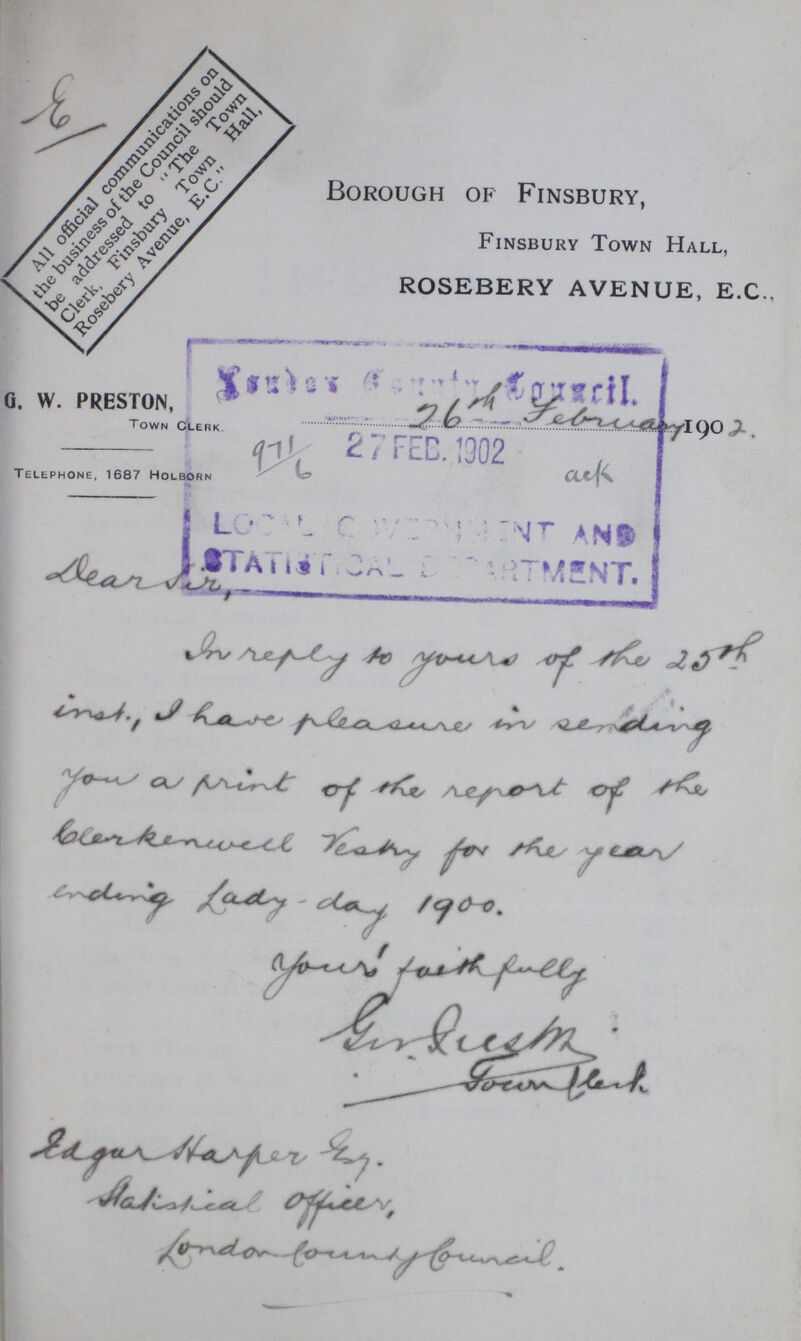 E
All official communications on
the business of the Council should
be addressed to "The Town
Clerk, Finsbury Town Hall,
Rosebery Avenue, E.C."
BOROUGH OF FINSBURY,
FINSBURY TOWN HALL,
ROSEBERY AVENUE, E.C.,
G. W. PRESTON,
TOWN CLERK.
TELEPHONE, 1687 HOLBORN
London County Council.
26th February 1902.
27 FEB. 1902
971/6
ack
LOCAL GOVERNMENT AND
STATISTICAL DEPARTMENT.
Dear Sir,
In reply to yours of the 25th
inst., I have pleasure in sending
you a print of the report of the
Clerkenwell Vestry for the year
ending Lady-day 1900.
Yours faithfully
G W Preston
Town Clerk
Edgar Harper Esq.
Statistical Officer,
London County Council.